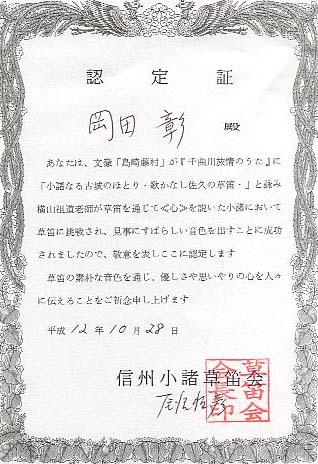 認定証
岡田 彰 殿
あなたは、文豪「島崎藤村」が『千曲川旅情のうた』に
「小諸なる古城のほとり・歌かなし佐久の草笛・」と詠み
横山祖道老師が草笛を通じて≪心≫を説いた小諸において
草笛に挑戦され、見事にすばらしい音色を出すことに成功
されましたので、敬意を表しここに認定します
草笛の素朴な音色を通じ、優しさや思いやりの心を人々
に伝えることをご祈念申し上げます
平成12年10月28日
信州小諸草笛会
草笛会
会長印